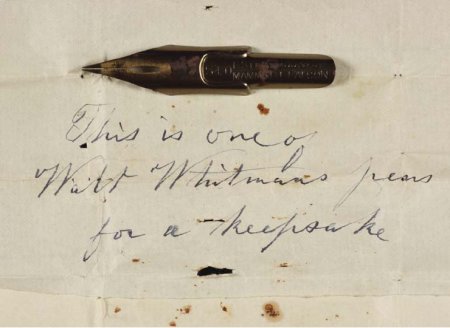 This is one of
Walt Whitmans pens
for a keepsake